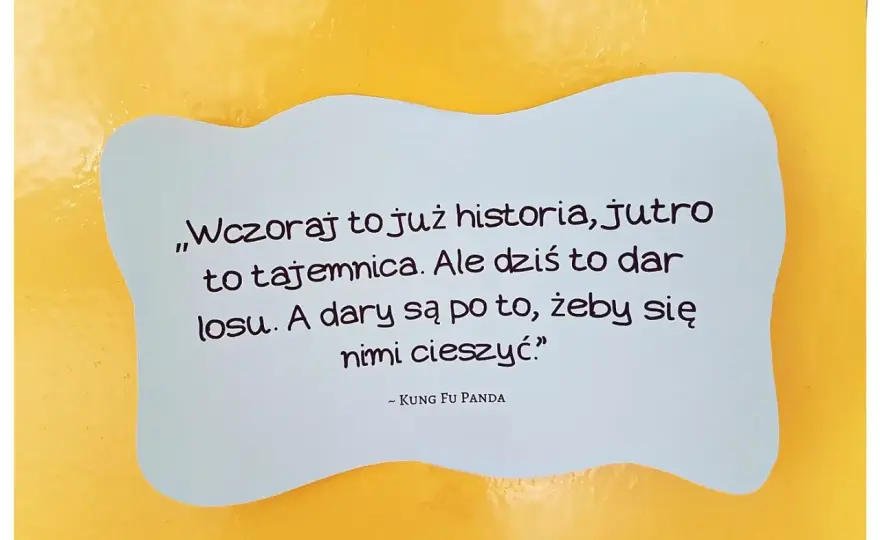 „Wczoraj to już historia, jutro
to tajemnica. Ale dziś to dar
losu. A dary są po to, żeby się
nimi cieszyć.”
~ Kung Fu Panda